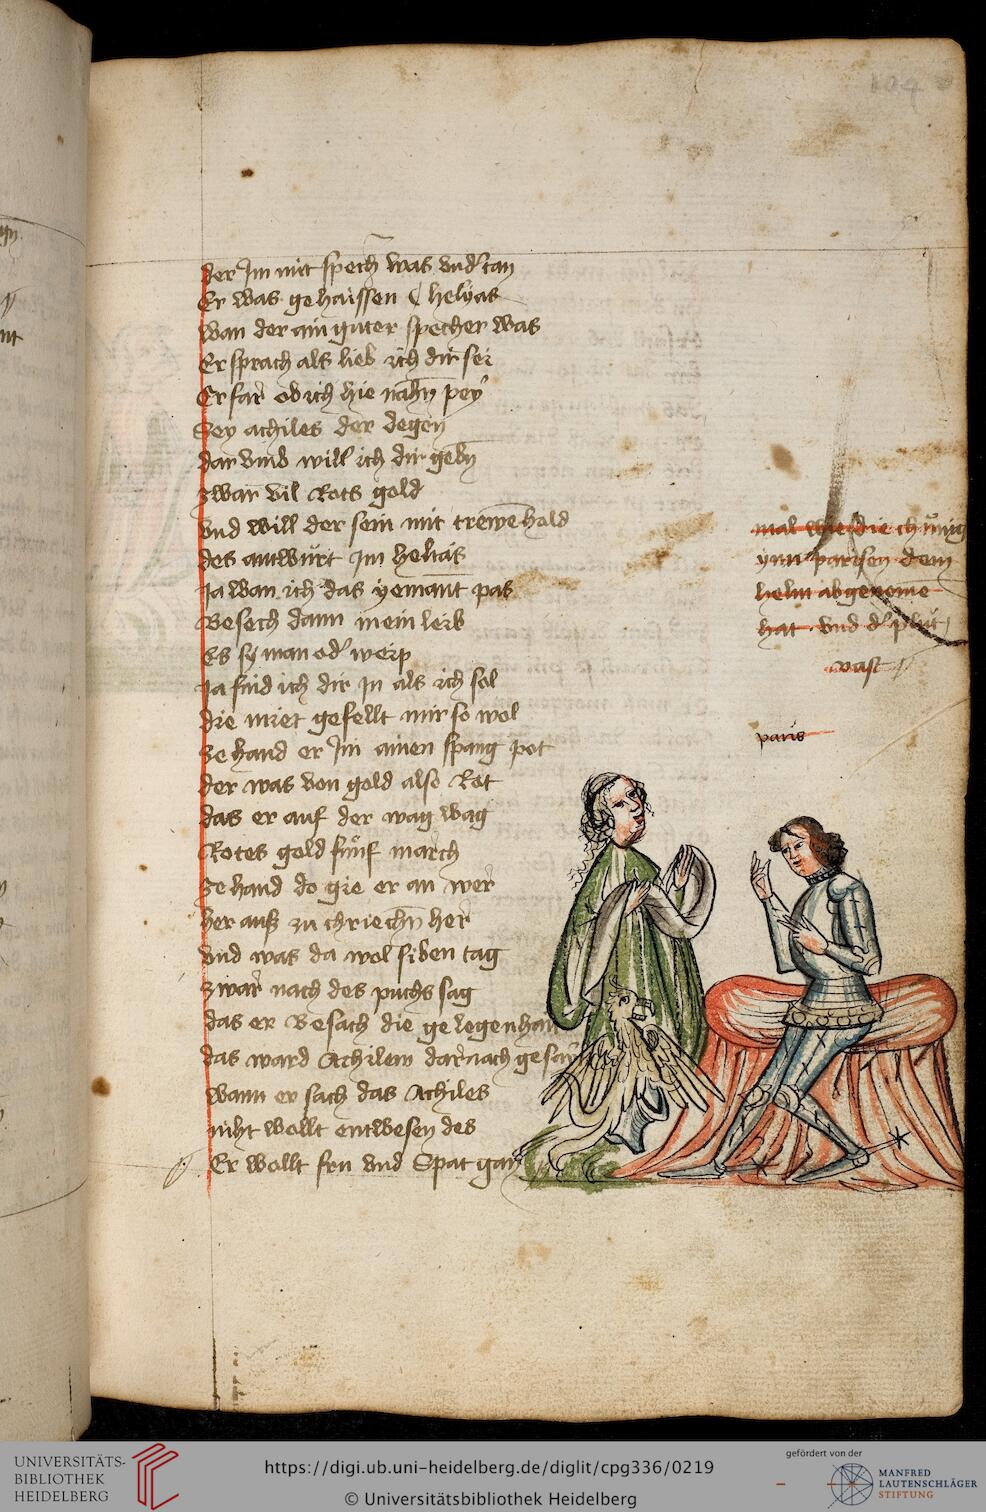 104
der Im mit spech was vnd'tan
Er was gehaissen helyas
wan der ain guter specher was
Er sprach als lieb ich dir sei
Er far ob ich hie nahn pey
Sey achiles der degen
dar vmb will ich dir gebn
zwar vil Rots gold
vnd will der sein mit trewe hold
des antwurt Im helias
Ja wan ich das yemant pas
Besech dann mein leib
Es sy man od' weip
Ja find ich dir In als ich sol
die miet gefellt mir so wol
ze hand er Im ainen spang pot
der was von gold also Rot
das er auf der wag wag
Rotes gold fünf march
ze hand do gie er an wer
her auß zu chriechn her
vnd was da wol siben tag
zwar nach des puchs sag
das er Besach die gelegenhait
das ward Achilem darnach gesait
wann er sach das Achiles
niht wollt entwesen des
Er wollt fru vnd Spat gan
mal wie die chünig
ynn parisen dem
helm abgenome
hat vnd d' plüt
vast
paris
UNIVERSITÄTS-
BIBLIOTHEK
HEIDELBERG
https://digi.ub.uni-heidelberg.de/diglit/cpg336/0219
© Universitätsbibliothek Heidelberg
gefördert von der
MANFRED
LAUTENSCHLÄGER
STIFTUNG